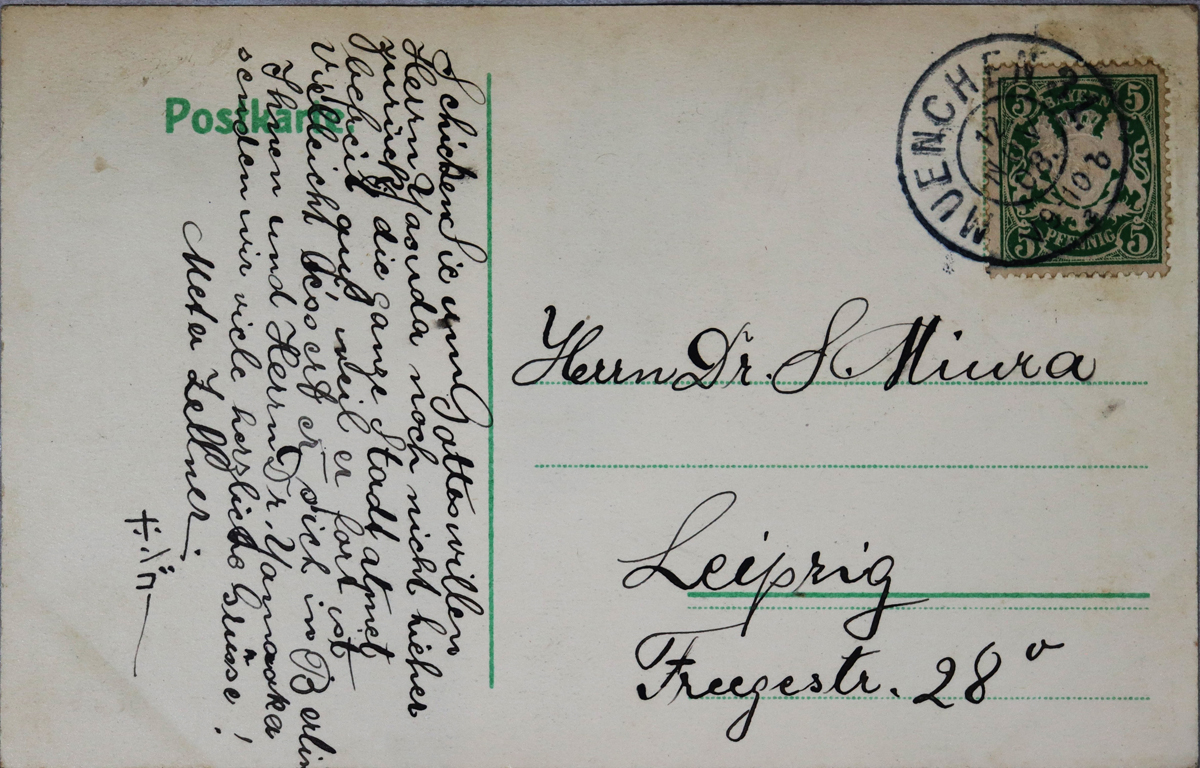 Postkarte.
Schicken Sie um Gotteswillen
Herrn Yasuda noch nicht hieher
zurück, die ganze Stadt atmet
jetzt auf weil er fort ist
Vielleicht bessert er sich in Berlin
Ihnen und Herrn Dr. Yamaoka
senden wir viele herzliche Grüsse!
Meta Zellner.
MUENCHEN
5 BAYERN 5
5 PFENNIG 5
Herrn Dr. S. Miura
Leipzig
Freegestr. 28